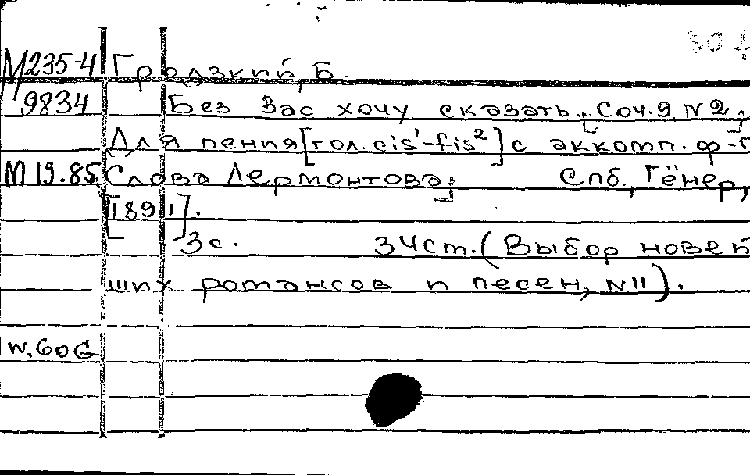 304
М235-4 Гродзкий, Б.
9834 Без Вас хочу сказать.[Соч.9, N2;
Для пения[гол.cis¹-fis²]с аккомп. ф-п
М 19.85 Слова Лермонтова] Спб., Гёнер,
[1891].
3с. 34см.(Выбор новей
ших романсов и песен, N11).